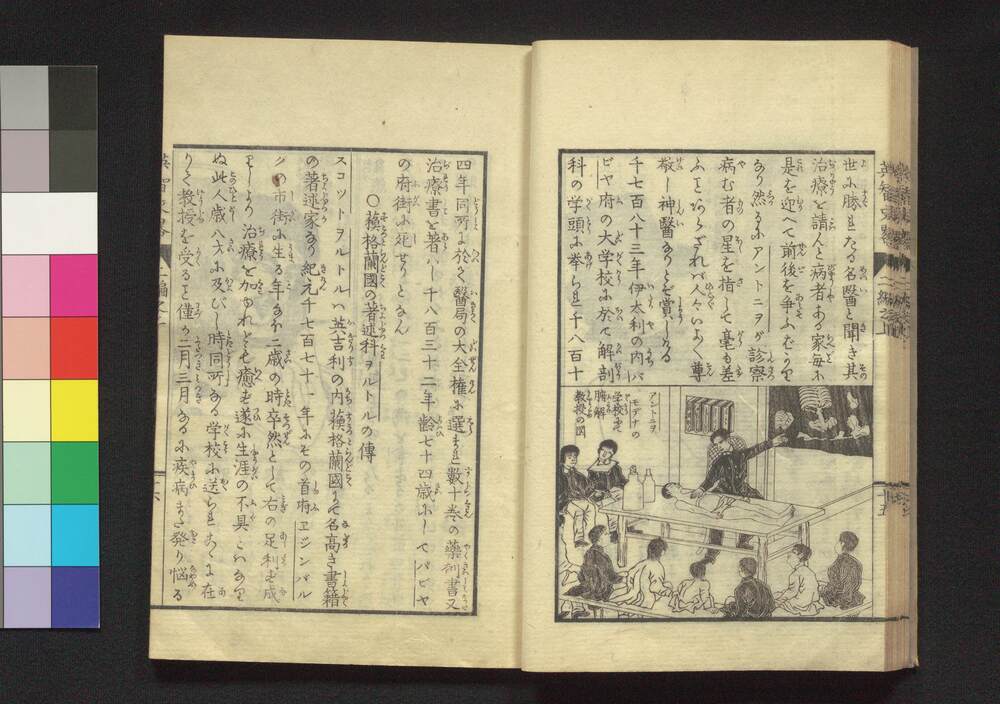 世に勝れたる名醫と聞き其
治療を請んと病者ある家毎に
是を迎へて前後を争ふばかり
なり然るにアントニヲが診察
病む者の星を指して毫も差
ふことあらざれバ人々いよ〱尊
敬し神醫なりとぞ賞しける
千七百八十三年伊太利の内パ
ビヤ府の大学校に於て解剖
科の学頭に挙られ千八百十
アントニヲ
モデナの
学校にて
腑解
教授の図
四年同所に於て醫局の大全権に選まれ數十巻の藥剤書又
治療書を著ハし千八百三十二年齢七十四歳にしてパビヤ
の府街に死せりとなん
〇蘓格蘭國の著述科ヲルトルの傳
スコットヲルトルハ英吉利の内蘓格蘭國にて名高き書籍
の著述家なり紀元千七百七十一年にその首府ヱジンバル
グの市街に生る年なほ二歳の時卒然として右の足利ず成
しより治療を加ゆれども癒ず遂に生涯の不具とハなり
ぬ此人歳八才に及びし時同所なる学校に送られあゝに在
りて教授を受ること僅か二月三月なるに疾病また発り悩る